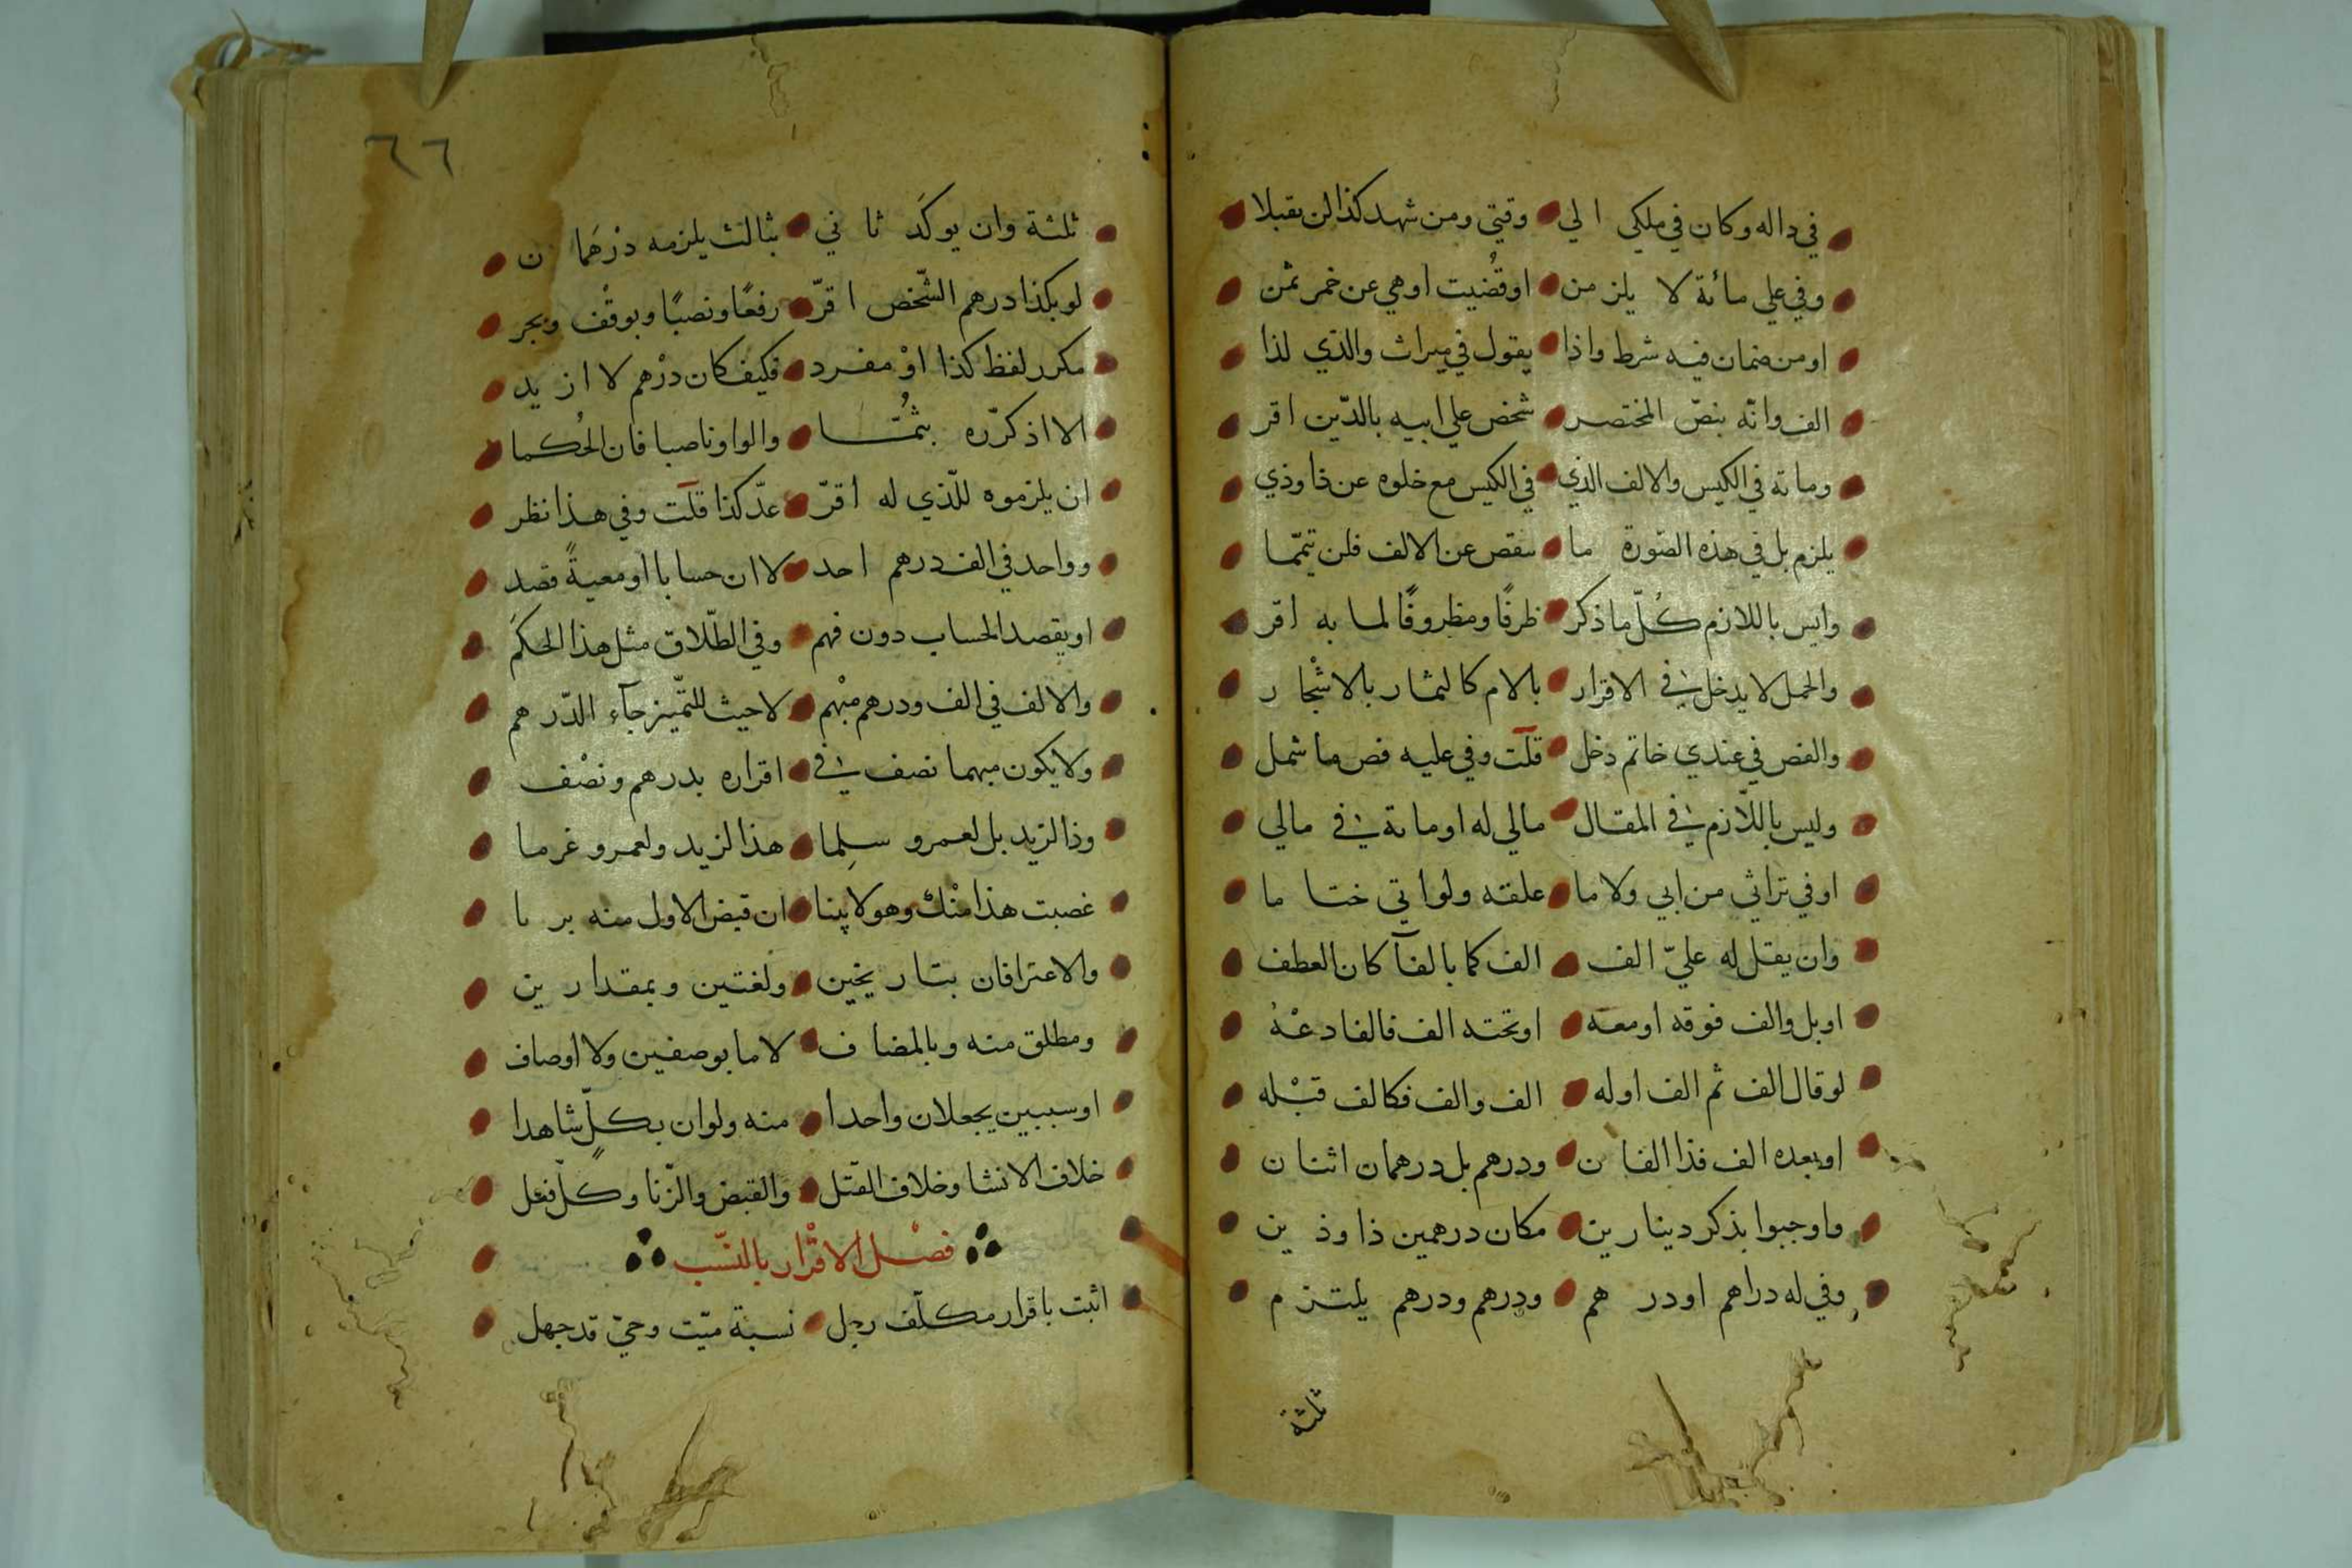 في داله وكان في ملكي الي وقتي ومن شهد كذا لن يقبلا
وفي علي مائة لا يلزمن او قُضيت او هي عن خمر ثمن
او من ضمان فيه شرط واذا يقول في ميراث والذي لذا
الف وانّه بنصّ المختصر شخص علي ابيه بالدّين اقر
ومائة في الكيس والالف الذي في الكيس مع خلوه عن ذا وذي
يلزم بل في هذه الصّورة ما ينقص عن الالف فلن يتمّما
وليس باللازم كُلّ ما ذكر ظرفًا ومظروفًا لما به اقر
والحمل لا يدخل في الاقرار بالام كالثمار بالاشْجار
والفص في عندي خاتم دخل قلت وفي عليه فص ما شمل
وليس باللّازم في المقال مالي له او مائة في مالي
او في تراثي من ابي ولا ما علقه ولو اتي ختاما
وان يقل له عليّ الف الف كما بالفآ كان العطف
او بل والف فوقه او معه او تحته الف فالفا دعْهُ
لو قال الف ثم الف او له الف والف فكالف قبْله
او بعده الف فذا الفان ودرهم بل درهمان اثنان
واوجبوا بذكر دينارين مكان درهمين ذا وذين
وفي له دراهم او درهم ودرهم ودرهم يلتزم
ثلثة
٦٦
ثلثة وان يوكَد ثاني بثالث يلزمه درْهَمان
لو بكذا درهم الشّخص اقرّ رفعًا ونصبًا وبوقْف وبجر
مكرر لفظ كذا اوْ مفرد فكيف كان درْهم لا ازيد
الا اذ كرّره بثُمّتا والواو ناصبا فان الحُكما
ان يلزموه للّذي له اقرّ عدّ كذا قلت وفي هذا نظر
وواحد في الف درهم احد لا ان حسابا او معيةً قصد
او يقصد الحساب دون فهم وفي الطّلاق مثل هذا الحكَم
والالف في الف ودرهم مبْهم لا حيث للتّمييز جآء الدّرهم
ولا يكون مبهما نصف في اقراره بدرهم ونصْف
وذا لزيد بل لعمرو سلِما هذا لزيد ولعمرو غرما
غصبت هذا منْك وهو لابننا ان قبض الاول منه برئا
والاعترافان بتاريخين ولغتين وبمقدارين
ومطلق منه وبالمضاف لا ما بوصفين ولا اوصاف
او سببين يجعلان واحدا منه ولو ان بكلّ شاهدا
خلاف الانشا وخلاف القتل والقبض والزّنا وكلّ فعل
فصْل الاقْرار بالنّسب
اثبت باقرار مكلّف رجل نسبة ميّت وحيّ قد جهل